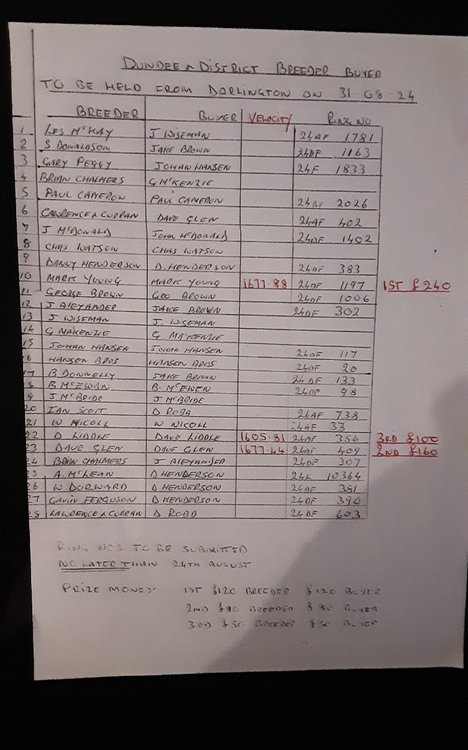 DUNDEE & DISTRICT BREEDER BUYER
TO BE HELD FROM DARLINGTON ON 31-08-24
BREEDER BUYER VELOCITY RING NO
1 LES McKAY J WISEMAN 24AF 1781
2 S DONALDSON JAKE BROWN 24DF 1163
3 GARY PEGGY JOHAN HANSEN 24F 1833
4 BRIAN CHALMERS G McKENZIE
5 PAUL CAMERON PAUL CAMERON 24DF 2026
6 LAWRENCE & CURRAN DAVE GLEN 24AF 402
7 J McDONALD JOHN McDONALD 24DF 1402
8 CHAS WATSON CHAS WATSON
9 DANNY HENDERSON D. HENDERSON 24DF 383
10 MARK YOUNG MARK YOUNG 1677.88 24DF 1197 1ST £240
11 GEORGE BROWN GEO BROWN 24DF 1006
12 J ALEXANDER JAKE BROWN 24DF 302
13 J WISEMAN J. WISEMAN
14 G MAKENZIE G MAKENZIE
15 JOHAN HANSEN JOHAN HANSEN 24DF 117
16 HANSEN BROS HANSEN BROS 24DF 20
17 B DONNELLY JAKE BROWN 24DF 133
18 B McEWAN B McEWEN 24DF 98
19 J McBRIDE J McBRIDE
20 IAN SCOTT D ROBB 24AF 738
21 W NICOLL W NICOLL 24AF 33
22 D LIDDLE DAVE LIDDLE 1605.81 24AF 356 3RD £100
23 DAVE GLEN DAVE GLEN 1677.44 24AF 409 2ND £160
24 BRIAN CHALMERS J ALEXANDER 24DF 307
25 A. McLEAN D HENDERSON 24L 10364
26 W DORWARD D HENDERSON 24DF 381
27 GAVIN FERGUSON D HENDERSON 24DF 390
28 LAWRENCE & CURRAN D ROBB 24DF 603
RING NOS. TO BE SUBMITTED
NO LATER THAN 24TH AUGUST
PRIZE MONEY 1ST £120 BREEDER £120 BUYER
2ND £80 BREEDER £80 BUYER
3RD £50 BREEDER £50 BUYER